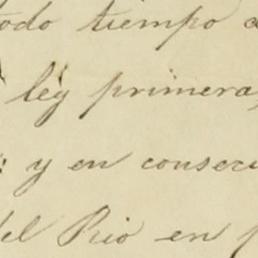 todo tiempo
ley primera,
: y en consecu
del Rio en p